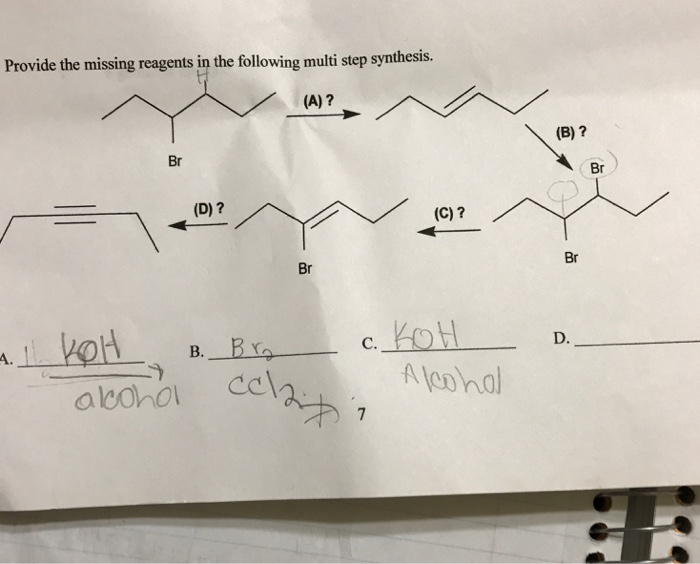 Provide the missing reagents in the following multi step synthesis.
H
(A) ?
(B) ?
Br
Br
(D) ?
(C) ?
Br
Br
A. KOH
alcohol
B. Br2
CCl2
C. KOH
Alcohol
D.
7